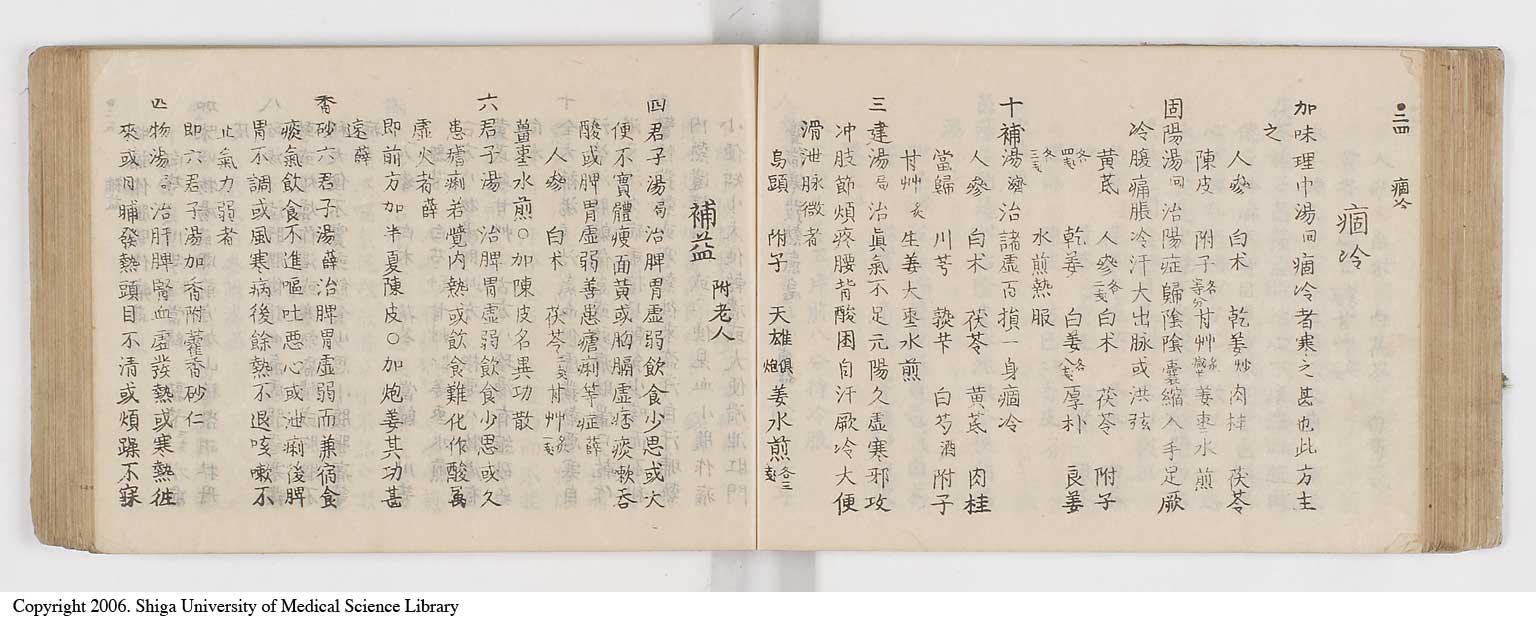 ●三四 痼冷
痼冷
加味理中湯回痼冷者寒之甚也此方主
之
人參 白术 乾姜炒 肉桂 茯苓
陳皮 附子各等分 甘艸炙減半 姜棗水煎
固陽湯回治陽症歸陰陰囊縮入手足厥
冷腹痛脹冷汗大出脉或洪弦
黄芪 人參各二戔 白术 茯苓 附子
各四戔 乾姜 白姜各八戔 厚朴 良姜
各三戔 水煎熱服
十補湯濟治諸虛百損一身痼冷
人參 白术 茯苓 黄芪 肉桂
當歸 川芎 熟芐 白芍酒 附子
甘艸炙 生姜大棗水煎
三建湯局治眞氣不足元陽久虛寒邪攻
冲肢節煩疼腰背酸困自汗厥冷大便
滑泄脉微者
烏頭 附子 天雄俱炮 姜水煎各三戔
補益 附老人
四君子湯局治脾胃虛弱飮食少思或大
便不實體瘦面黄或胸膈虛痞痰軟吞
酸或脾胃虛弱善患瘧痢等症薛
人參 白术 茯苓二戔 甘艸炙一戔
薑棗水煎○加陳皮名異功散
六君子湯 治脾胃虛弱飮食少思或久
患瘧痢若覺内熱或飮食難化作酸属
虛火者薛
即前方加半夏陳皮○加炮姜其功甚
速薛
香砂六君子湯薛治脾胃虛弱而兼宿食
痰氣飮食不進嘔吐悪心或泄痢後脾
胃不調或風寒病後餘熱不退咳嗽不
止氣力弱者
即六君子湯加香附藿香砂仁
四物湯 治肝脾腎血虛發熱或寒熱徃
來或日晡發熱頭目不清或煩躁不寐